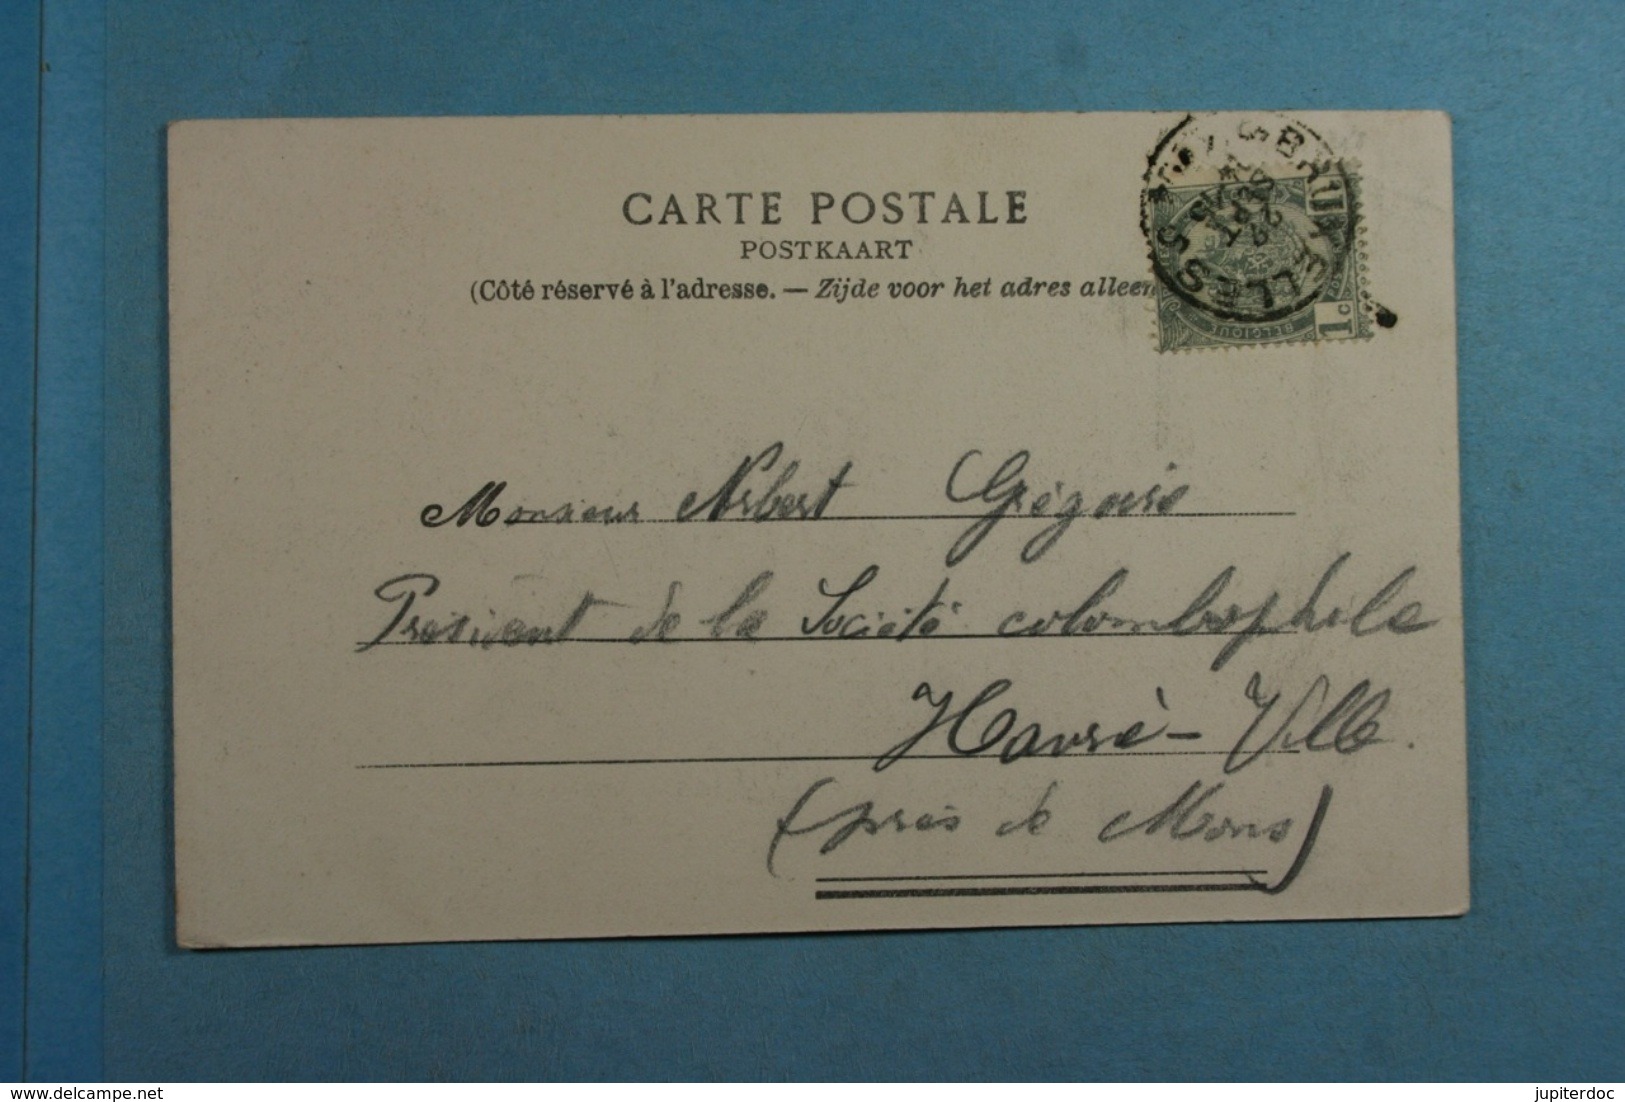 CARTE POSTALE
POSTKAART
(Côté réservé à l'adresse. — Zijde voor het adres alleen
BRUXELLES
BELGIQUE
1c
Monsieur Norbert Grégoire
Président de la Société colombophile
Havré-Ville.
(près de Mons)
delcampe.net
jupiterdoc